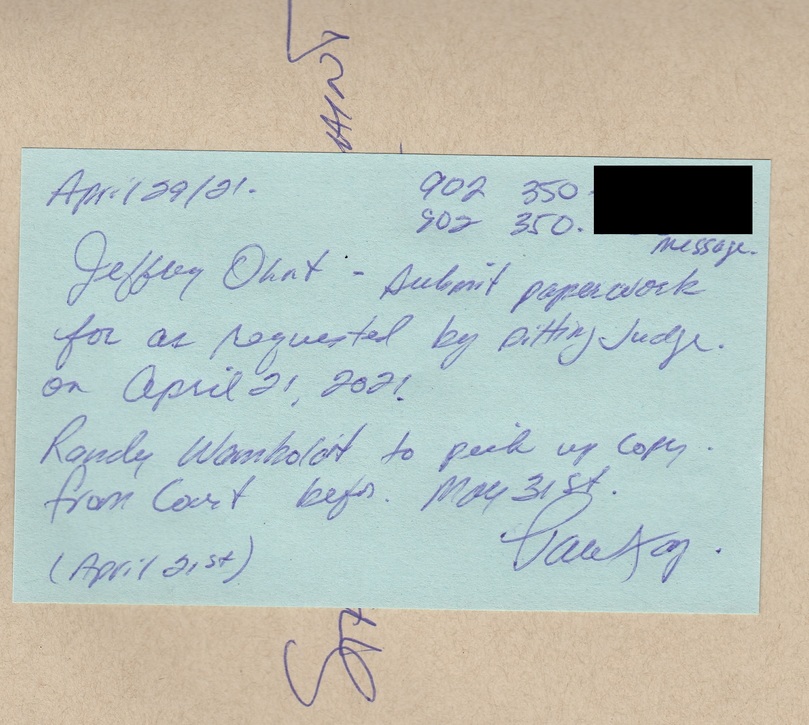 April 29/21.
902 350.
902 350.
message.
Jeffrey - Submit paperwork
for as requested by sitting Judge.
on April 21, 2021.
Randy Wamboldt to pick up copy.
from Court befor. May 31st.
(April 21st)